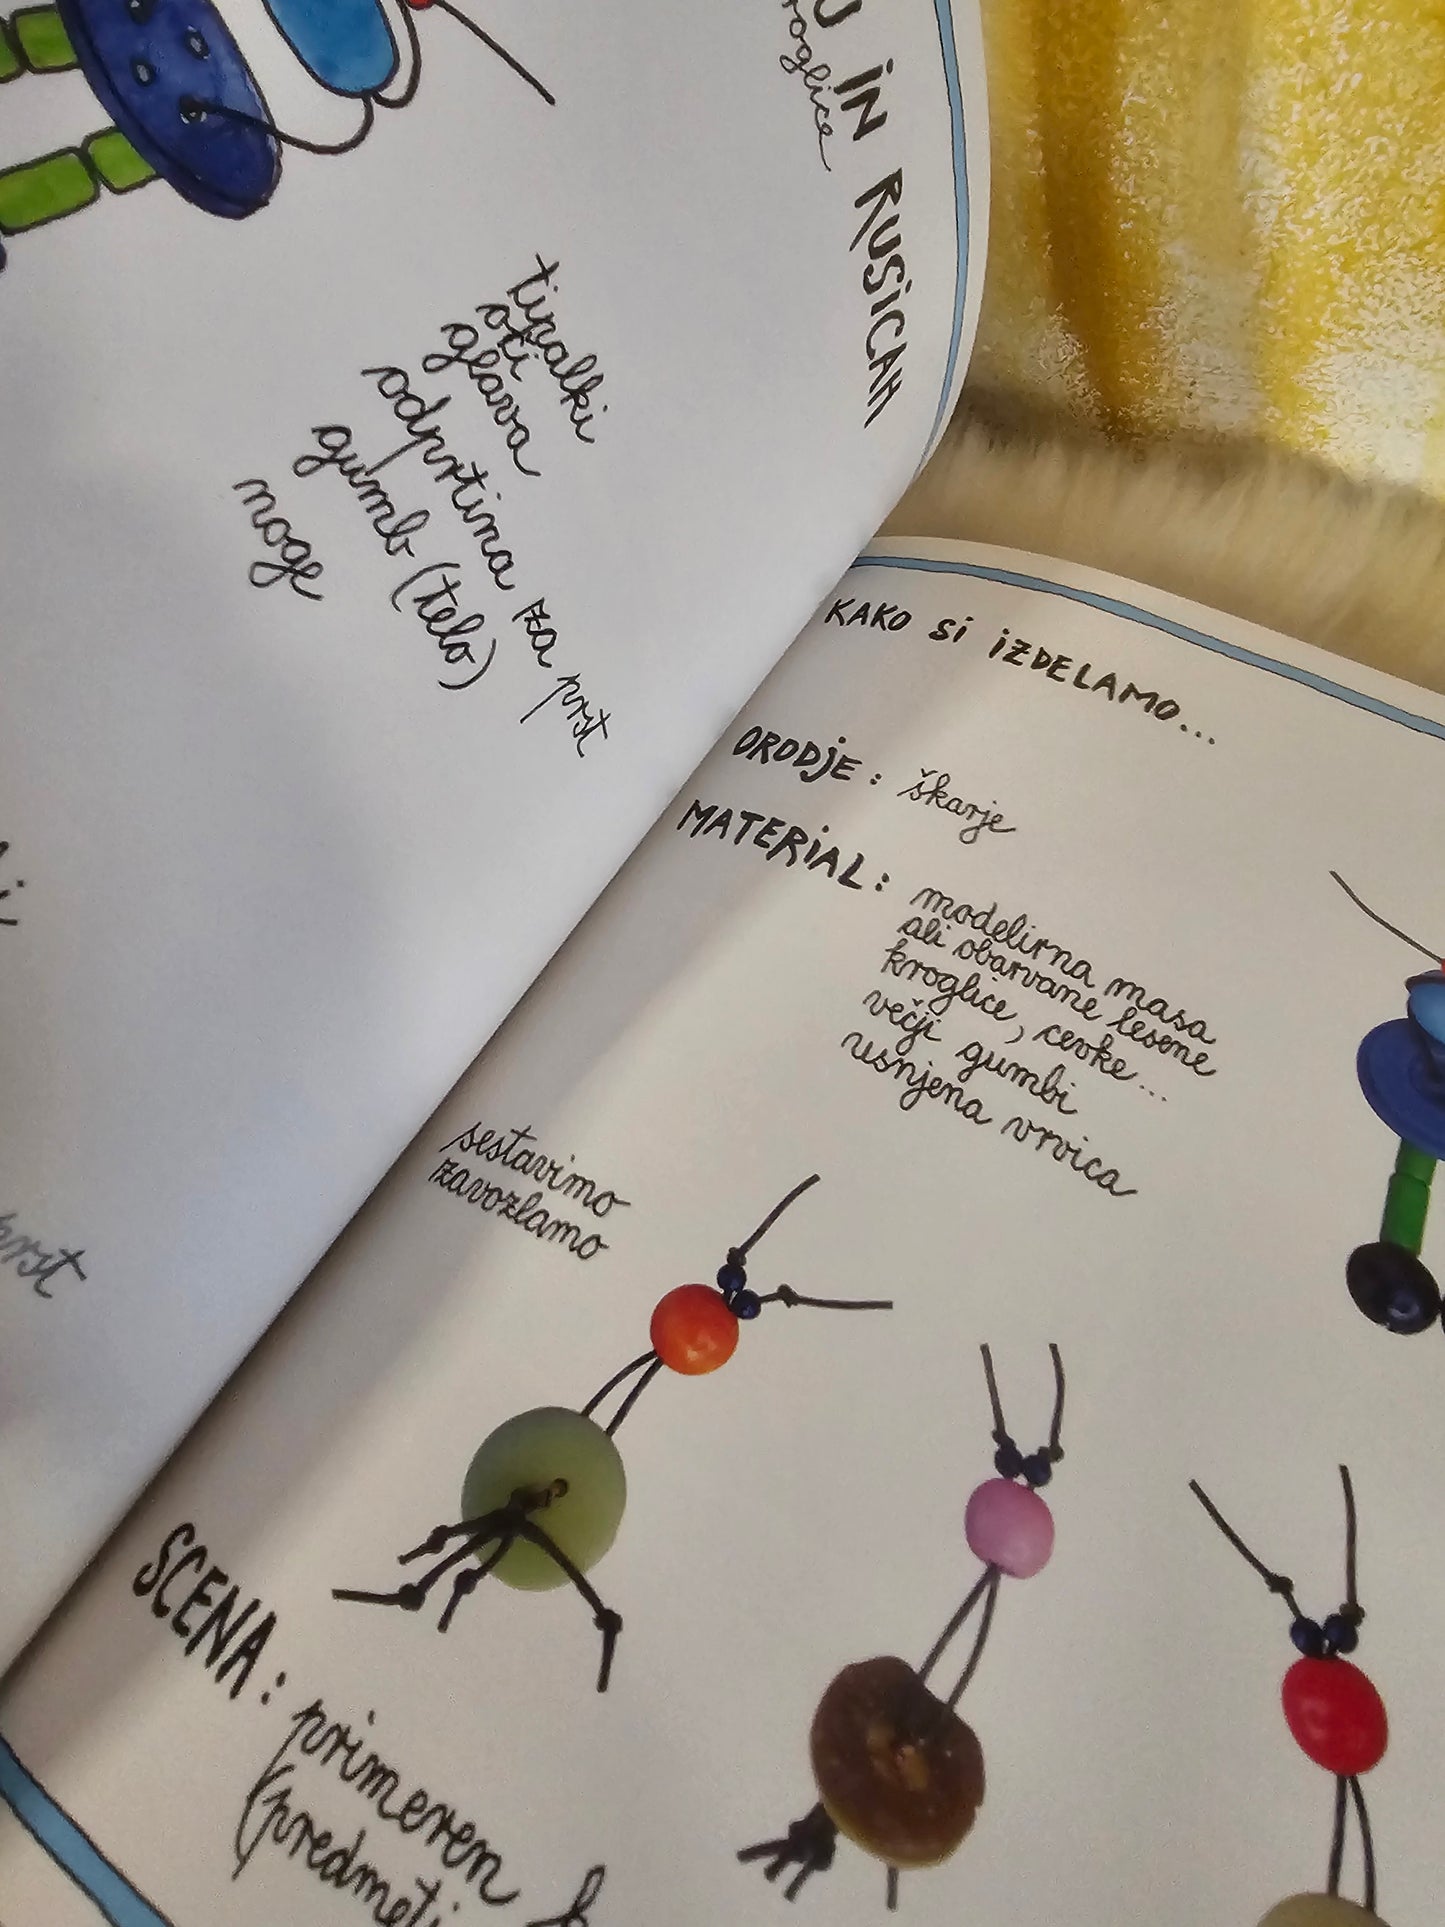 IN RUSICAH
tipalki
oči
glava
odprtina za prst
gumb (telo)
noge
prst
KAKO SI IZDELAMO...
ORODJE: škarje
MATERIAL: modelirna masa
ali obarvane lesene
kroglice, cevke...
večji gumbi
usnjena vrvica
sestavimo
zavozlamo
SCENA: primeren
(predmeti